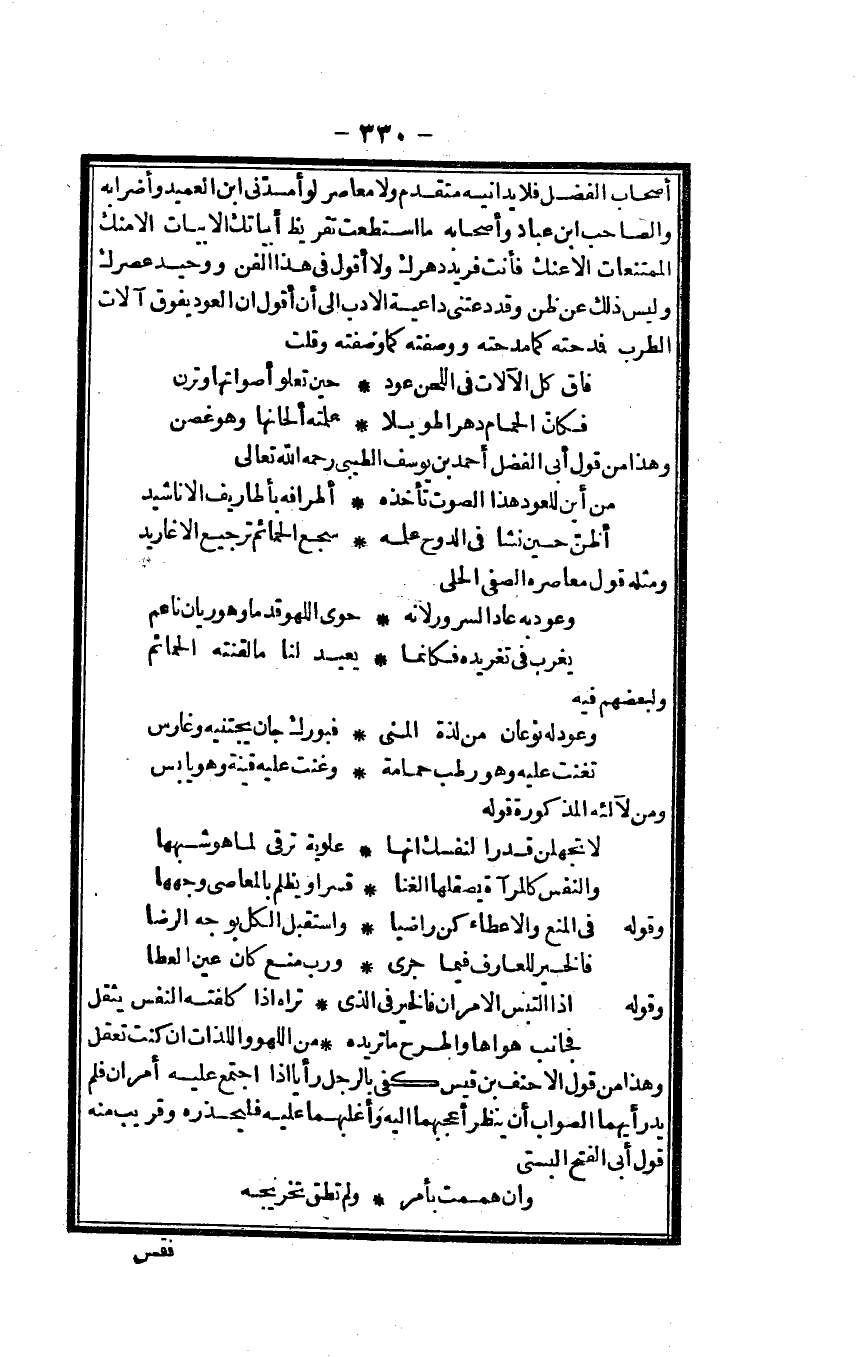 - ٣٣٠ -
أصحاب الفضل فلا يدانيه متقدم ولا معاصر لو أمدّنى ابن العميد وأضرابه
والصاحب ابن عباد وأصحابه ما استطعت تقريظ أبياتك الابيات الامنك
الممتنعات الاعنك فأنت فريد دهرك ولا أقول فى هذا الفن ووحيد عصرك
وليس ذلك عن ظن وقد دعتنى داعية الادب الى أن أقول ان العود يفوق آلات
الطرب فمدحته كما مدحته ووصفته كما وصفته وقلت
فاق كل الآلات فى اللحن عود * حين تعلو أصواتها وترن
فكانّ الحمام دهرا طويلا * علمته ألحانها وهو غصن
وهذا من قول أبى الفضل أحمد بن يوسف الطيبى رحمه الله تعالى
من أين للعود هذا الصوت تأخذه * أطرافه بأطاريف الاناشيد
أظنّ حين نشا فى الدوح علمه * سجع الحمائم ترجيع الاغاريد
ومثله قول معاصره الصفى الحلى
وعود به عاد السرور لانه * حوى اللهو قدما وهو ريان ناعم
يغرب فى تغريده فكانما * يعيد لنا ما لقنته الحمائم
ولبعضهم فيه
وعود له نوعان من لذة المنى * فبورك جان يجتنيه وغارس
تغنت عليه وهو رطب حمامة * وغنت عليه قينة وهو يابس
ومن لآلئه المذكورة قوله
لا تجهلن قدرا لنفسك انها * علوية ترقى لما هو شبهها
والنفس كالمرآة يصقلها الغنا * قسرا ويظلم بالمعاصى وجهها
وقوله فى المنع والاعطاء كن راضيا * واستقبل الكل بوجه الرضا
فالخير للعارف فيما جرى * ورب منع كان عين العطا
وقوله اذا التبس الامران فالخير فى الذى * تراه اذا كلفته النفس يثقل
فجانب هواها واطرح ما تريده * من اللهو واللذات ان كنت تعقل
وهذا من قول الاحنف بن قيس كفى بالرجل رأيا اذا اجتمع عليه أمران فلم
يدر أيهما الصواب أن ينظر أعجبهما اليه وأغلبهما عليه فليحذره وقريب منه
قول أبى الفتح البستى
وان هممت بأمر * ولم تطق تخريجه
فقس